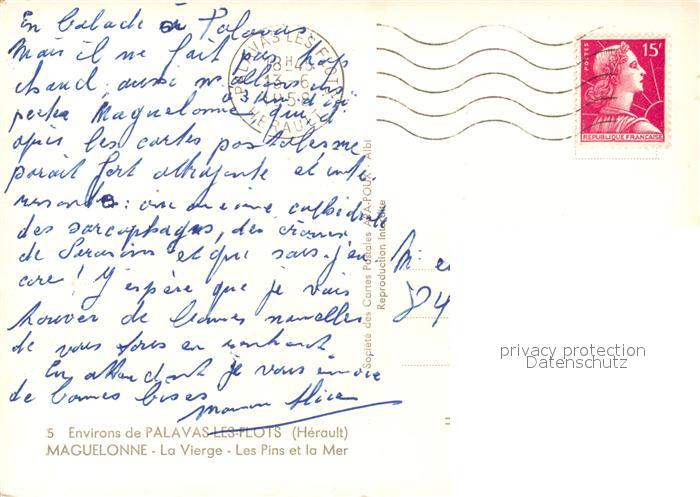 En balade à Palavas
Mais il ne fait pas trop
chaud, aussi nous allons ins
pecter Maguelonne qui, d'
après les cartes postales me
parait fort attrayante et inté
ressante : une ancienne cathédrale
des sarcophages, des
de Sarrasins et que sais-je en
core ! J'espère que je vais
trouver de bonnes nouvelles
de vous tous en rentrant.
En attendant je vous envoie
de bonnes bises
maman Alice
PALAVAS-LES-FLOTS
18H45
13-6
HERAULT
POSTES
15F
REPUBLIQUE FRANÇAISE
Société des Cartes Postales APA-POUX - Albi
Reproduction Interdite
M
84
privacy protection
Datenschutz
5 Environs de PALAVAS-LES-FLOTS (Hérault)
MAGUELONNE - La Vierge - Les Pins et la Mer